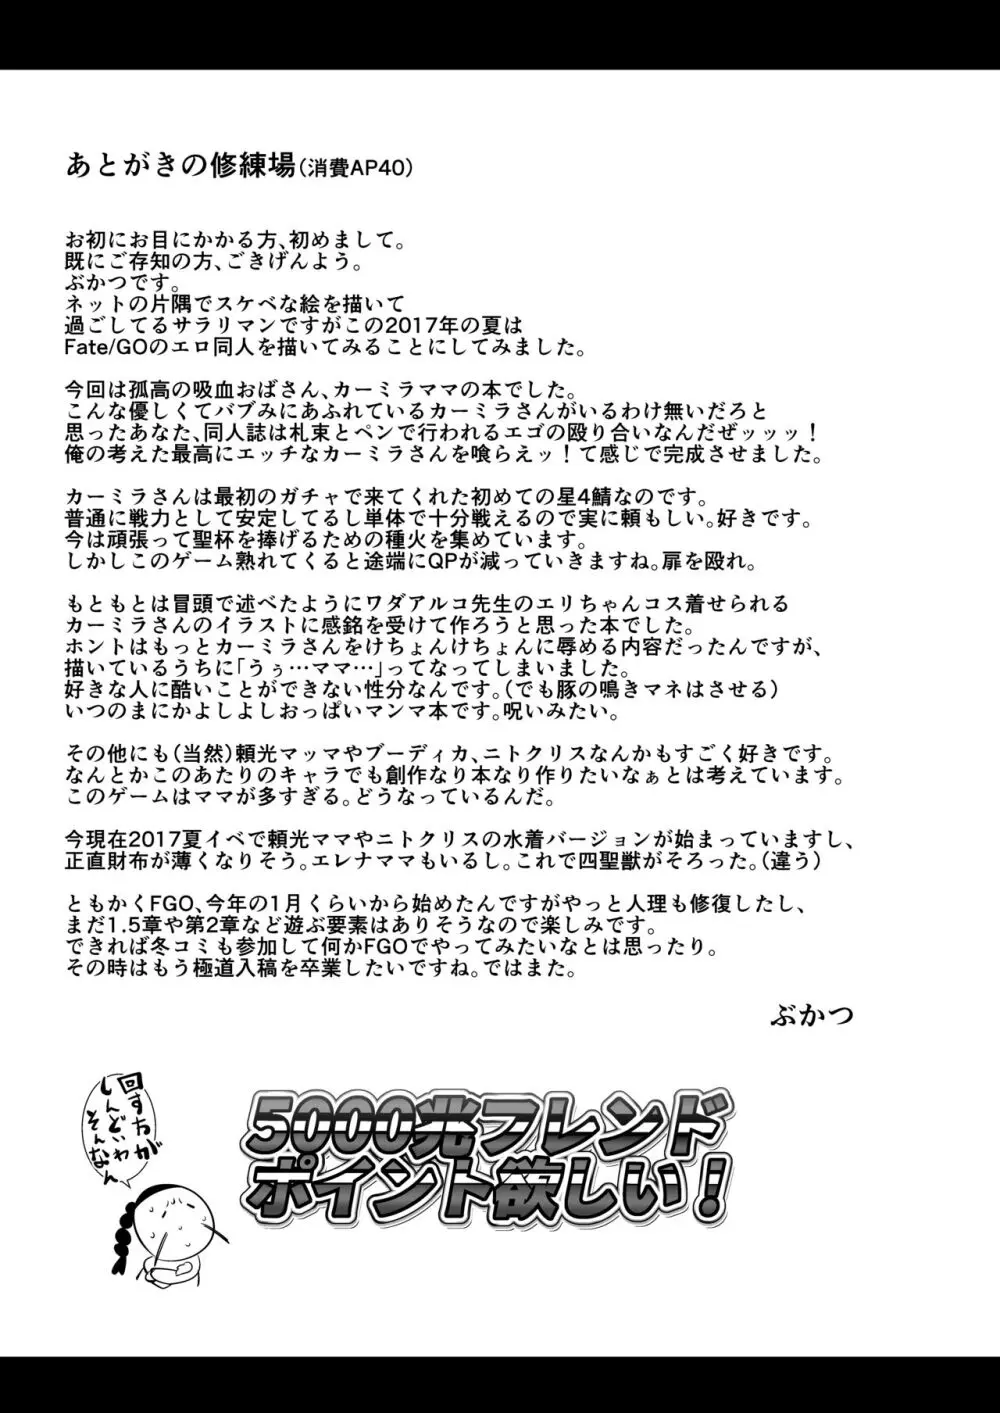 あとがきの修練場(消費AP40)
お初にお目にかかる方、初めまして。
既にご存知の方、ごきげんよう。
ぶかつです。
ネットの片隅でスケベな絵を描いて
過ごしてるサラリマンですがこの2017年の夏は
Fate/GOのエロ同人を描いてみることにしてみました。
今回は孤高の吸血おばさん、カーミラママの本でした。
こんな優しくてバブみにあふれているカーミラさんがいるわけ無いだろと
思ったあなた、同人誌は札束とペンで行われるエゴの殴り合いなんだぜッッッ！
俺の考えた最高にエッチなカーミラさんを喰らえッ！て感じで完成させました。
カーミラさんは最初のガチャで来てくれた初めての星4鯖なのです。
普通に戦力として安定してるし単体で十分戦えるので実に頼もしい。好きです。
今は頑張って聖杯を捧げるための種火を集めています。
しかしこのゲーム熟れてくると途端にQPが減っていきますね。扉を殴れ。
もともとは冒頭で述べたようにワダアルコ先生のエリちゃんコス着せられる
カーミラさんのイラストに感銘を受けて作ろうと思った本でした。
ホントはもっとカーミラさんをけちょんけちょんに辱める内容だったんですが、
描いているうちに「うぅ…ママ…」ってなってしまいました。
好きな人に酷いことができない性分なんです。(でも豚の鳴きマネはさせる)
いつのまにかよしよしおっぱいマンマ本です。呪いみたい。
その他にも(当然)頼光マッマやブーディカ、ニトクリスなんかもすごく好きです。
なんとかこのあたりのキャラでも創作なり本なり作りたいなぁとは考えています。
このゲームはママが多すぎる。どうなっているんだ。
今現在2017夏イベで頼光ママやニトクリスの水着バージョンが始まっていますし、
正直財布が薄くなりそう。エレナママもいるし。これで四聖獣がそろった。(違う)
ともかくFGO、今年の1月くらいから始めたんですがやっと人理も修復したし、
まだ1.5章や第2章など遊ぶ要素はありそうなので楽しみです。
できれば冬コミも参加して何かFGOでやってみたいなとは思ったり。
その時はもう極道入稿を卒業したいですね。ではまた。
ぶかつ
回すちが
しんどいわ
そんなん
5000兆フレンド
ポイント欲しい！